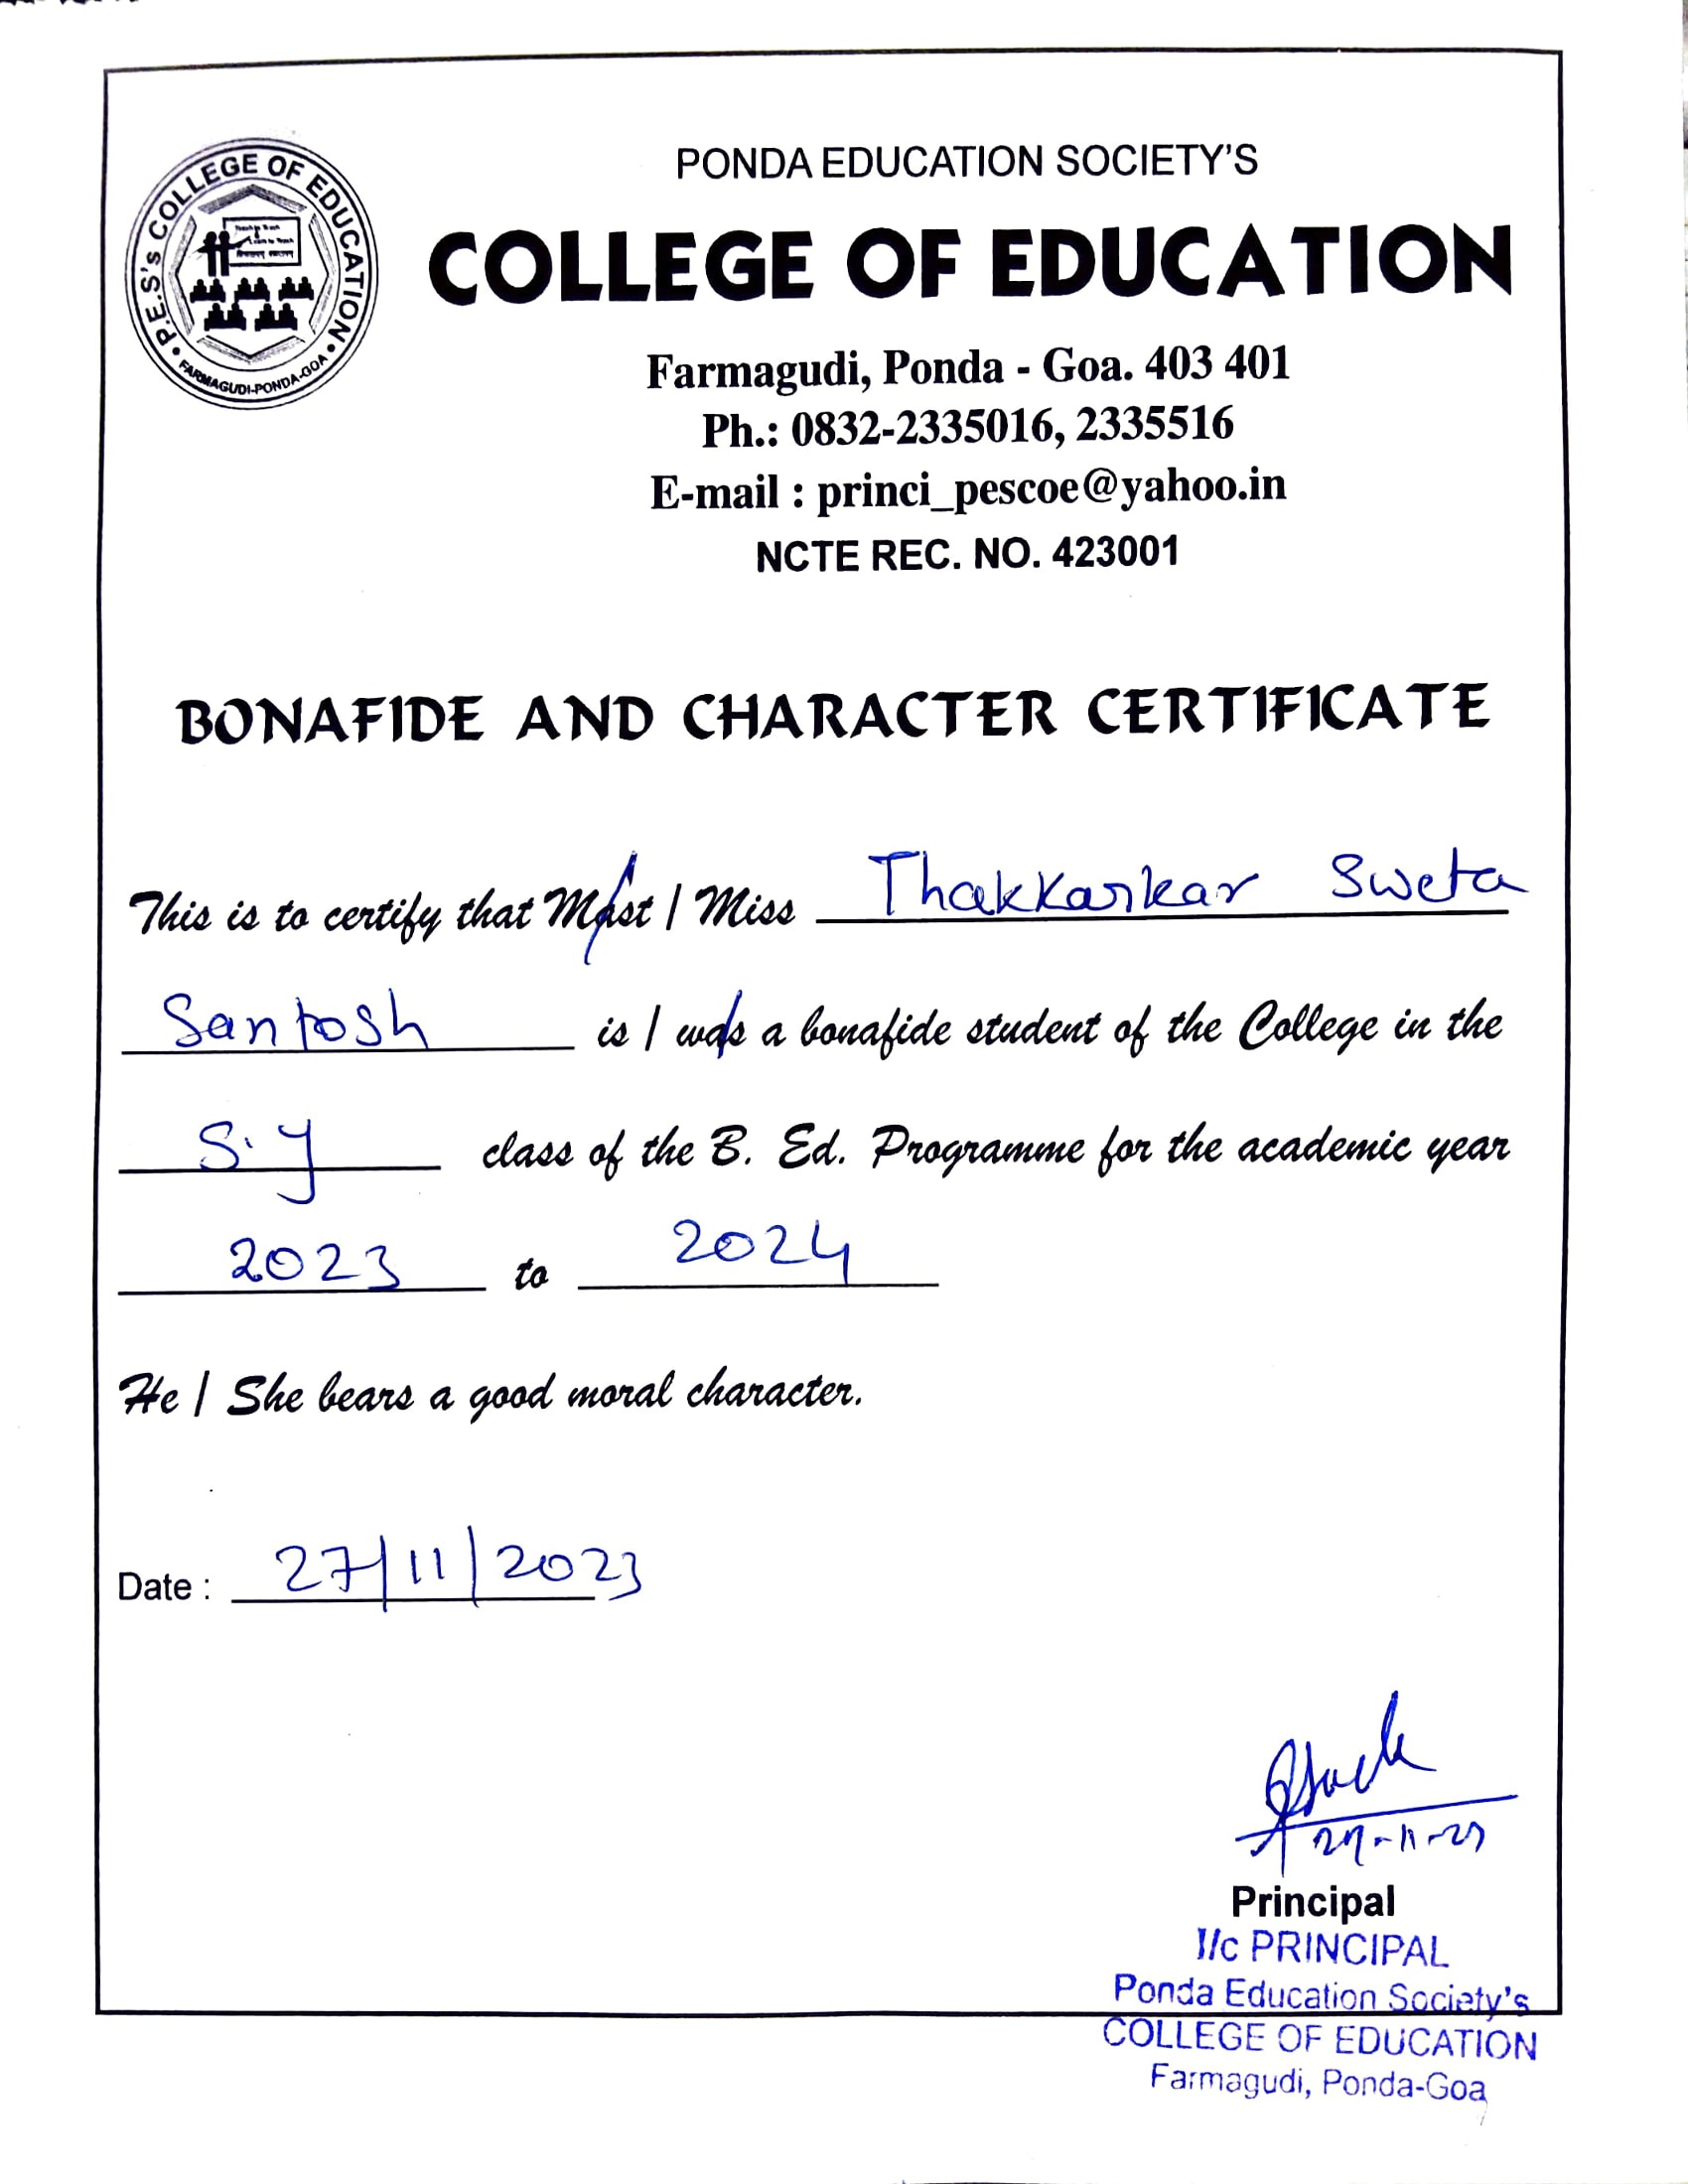 P.E.S's COLLEGE OF EDUCATION
FARMAGUDI-PONDA-GOA
Teach to Teach
Learn to Teach
PONDA EDUCATION SOCIETY'S
COLLEGE OF EDUCATION
Farmagudi, Ponda - Goa. 403 401
Ph.: 0832-2335016, 2335516
E-mail : princi_pescoe@yahoo.in
NCTE REC. NO. 423001
BONAFIDE AND CHARACTER CERTIFICATE
This is to certify that Mast / Miss Thakkarkar Sweta
Santosh is / was a bonafide student of the College in the
S.Y class of the B. Ed. Programme for the academic year
2023 to 2024
He / She bears a good moral character.
Date : 27/11/2023
27-11-23
Principal
I/c PRINCIPAL
Ponda Education Society's
COLLEGE OF EDUCATION
Farmagudi, Ponda-Goa